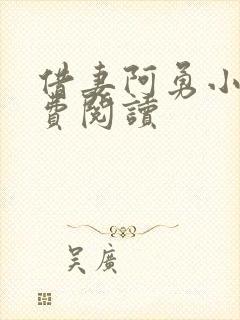 借妻阿勇小
費閱讀
吳廣